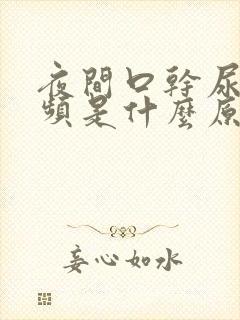 夜間口幹尿
頻是什麼原
妄心如水